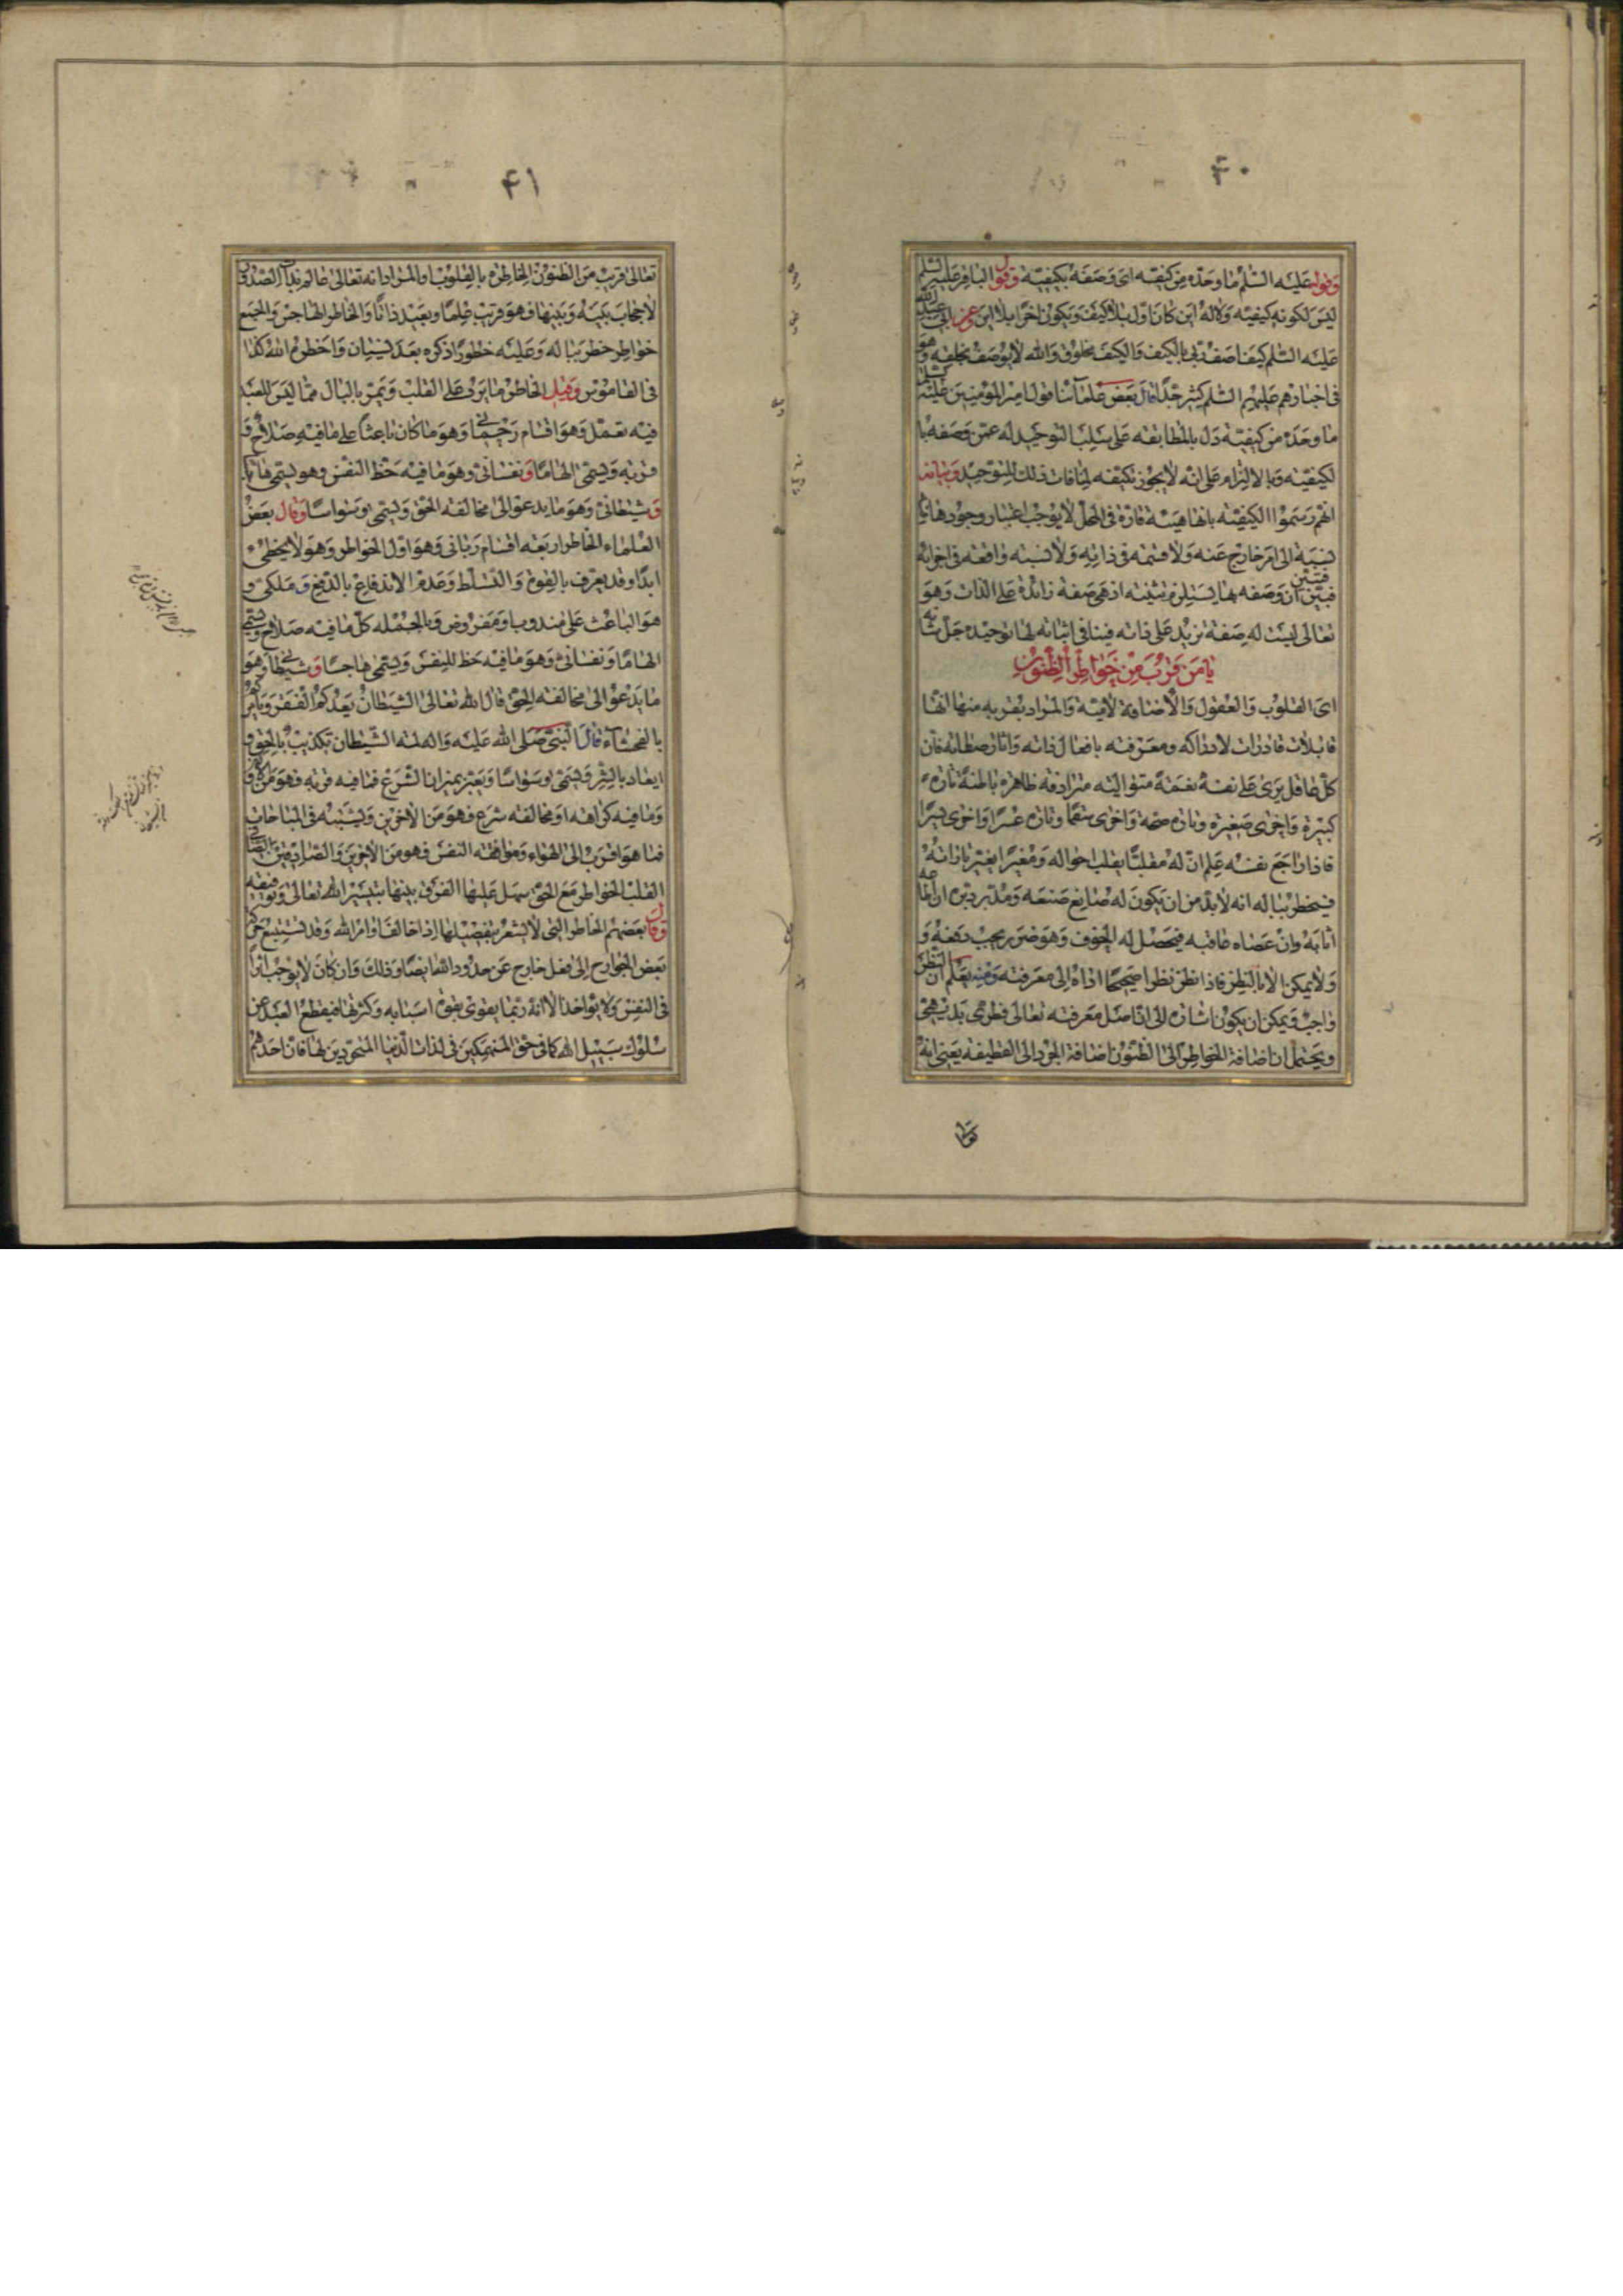 ۴۰
وقوله عليه السّلم ما وحّده من كيّفه اى وصفه بكيفيّة وقول الباقر عليه السّلم
ليس لكونه كيفيّة ولا له اين كان اوّل بلا كيف ويكون اخرا بلا اين وعن ابى عبد الله
عليه السّلم كيف اصف ربى بالكيف والكيف مخلوق والله لا يوصف بخلقه وهو
فى اخبارهم عليهم السّلم كثير جدّا قال بعض علمائنا قول امير المؤمنين عليه السّلم
ما وحّده من كيّفه دلّ بالمطابقة على سلب التوحيد له عمّن وصفه با
لكيفيّة وبالالتزام على انّه لا يجوز تكيّفه لمنافات ذلك للتوحيد وبيانه
انهم رسموا الكيفيّة بانها هيئة قارّة فى المحلّ لا يوجب اعتبار وجودها فيه
نسبة الى امر خارج عنه ولا قسمة فى ذاته ولا نسبة واقعة فى اجزائه
فبيّن انّ وصفه بها يستلزم تثنيته اذ هى صفة زائدة على الذات وهو
تعالى ليست له صفة تزيد على ذاته فينافى اثباته لها توحيده جلّ شانه
يا من قرب من خواطر الظنون
اى القلوب والعقول والاضافة لاميّة والمراد بقربه منها انّها
قابلات قادرات لادراكه ومعرفته بافعال ذاته واثار صفاته فانّ
كلّ عاقل يرى على نفسه نعمة متوالية مترادفة ظاهرة باطنة تارة
كبيرة واخرى صغيرة وتارة صحة واخرى سقما وتارة عسرا واخرى يسرا
فاذا راجع نفسه علم انّ له مقلبا يقلب احواله ومغيّرا يغيّر ارادته
فيخطر بباله انه لا بدّ من ان يكون له صانع صنعه ومدبّر دبّره ان اطاعه
اثابه وان عصاه عاقبه فيحصل له الخوف وهو ضرر يجب دفعه و
ولا يمكن الا بالنظر فاذا نظر نظرا صحيحا ادّاه الى معرفته ومنه يعلم ان النظر
واجب ويمكن ان يكون اشارة الى انّ اصل معرفته تعالى فطرىّ بديهىّ
ويحتمل ان اضافة الخواطر الى الظنون اضافة الجرد الى القطيفة يعنى انه
۴۱
تعالى قريب من الظنون الخاطرة بالقلوب والمراد انه تعالى عالم بذات الصدور
لا حجاب بينه وبينها فهو قريب علما وبعيد ذاتا والخاطر الهاجس والجمع
خواطر خطر بباله وعليه خطورا ذكره بعد نسيان واخطره الله كذا
فى القاموس وقيل الخاطر ما يرد على القلب ويمرّ بالبال ممّا ليس للعبد
فيه تعمّل وهو اقسام رحمانى وهو ما كان باعثا على ما فيه صلاح و
قربة ويسمّى الهاما ونفسانى وهو ما فيه حظّ النفس وهو يسمى هاجسا
وشيطانى وهو ما يدعو الى مخالفة الحق ويسمى وسواسا وقال بعض
العلماء الخاطر اربعة اقسام ربانى وهو اوّل الخواطر وهو لا يخطئ
ابدا وقد يعرف بالقوة والتسلّط وعدم الاندفاع بالدفع وملكى و
هو الباعث على مندوب او مفروض وبالجملة كلّ ما فيه صلاح ويسمى
الهاما ونفسانى وهو ما فيه حظ للنفس ويسمى هاجسا وشيطانى وهو
ما يدعو الى مخالفة الحق قال الله تعالى الشيطان يعدكم الفقر ويامركم
بالفحشاء قال النبى صلى الله عليه واله لمة الشيطان تكذيب بالحق و
ايعاد بالشر ويسمى وسواسا ويعتبر بميزان الشرع فما فيه قربة فهو من الاولين
وما فيه كراهة او مخالفة شرع فهو من الاخرين ويشتبه فى المباحات
فما هو اقرب الى الهواء وموافقة النفس فهو من الاخرين والصادق الصافى
القلب الخواطر مع الحق سهل عليها الفرق بينها بتيسير الله تعالى وتوفيقه
وقال بعضهم الخاطر التى لا تشعر بتفصيلها اذا خالف اوامر الله وقد تستتبع حركة
بعض الجوارح الى فعل خارج عن حدود الله ايضا وذلك وان كان لا يوجب اثرا
فى النفس ولا يواخذ الا انه ربما يقوى بقوة اسبابه وكثرتها فيقطع العبد عن
سلوك سبيل الله كما فى حق المنهمكين فى لذات الدنيا المتجردين لها فان احدهم